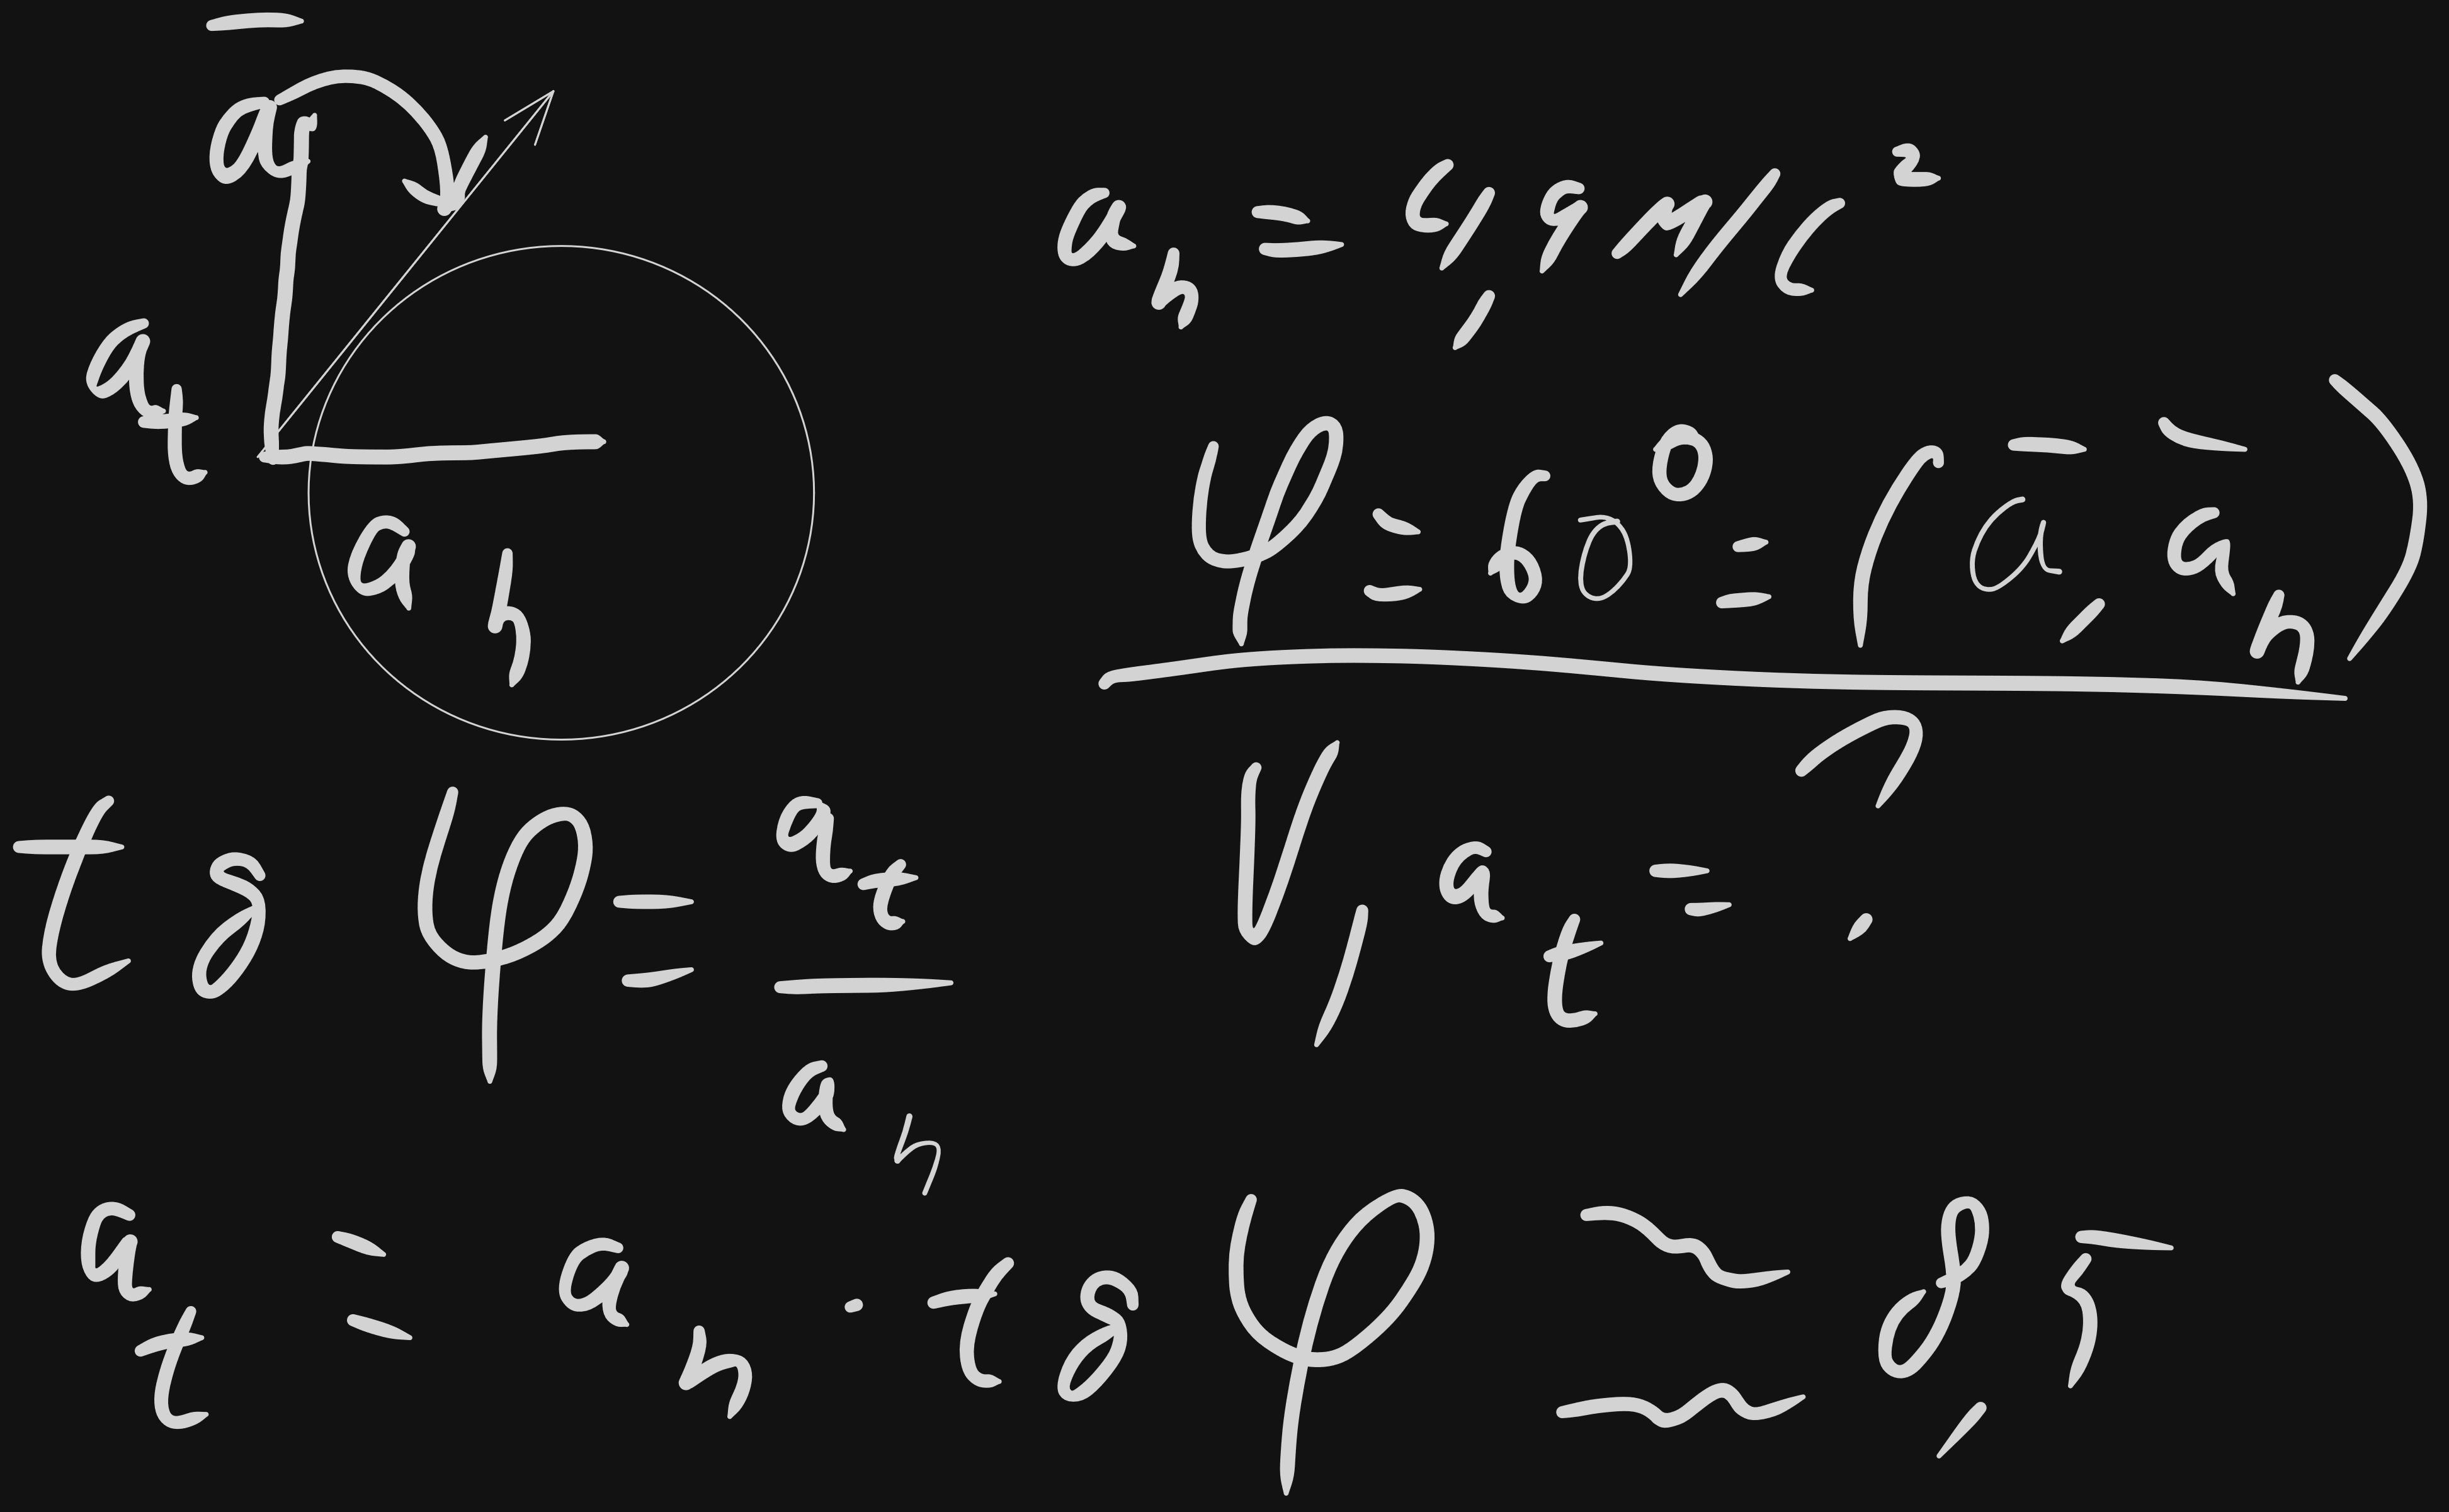 a
a_t
a_n
a_n = 4,9 м/с²
φ = 60° = (a̅, a̅_n)
V, a_t = ?
tg φ = a_t / a_n
a_t = a_n · tg φ ≈ 8,5